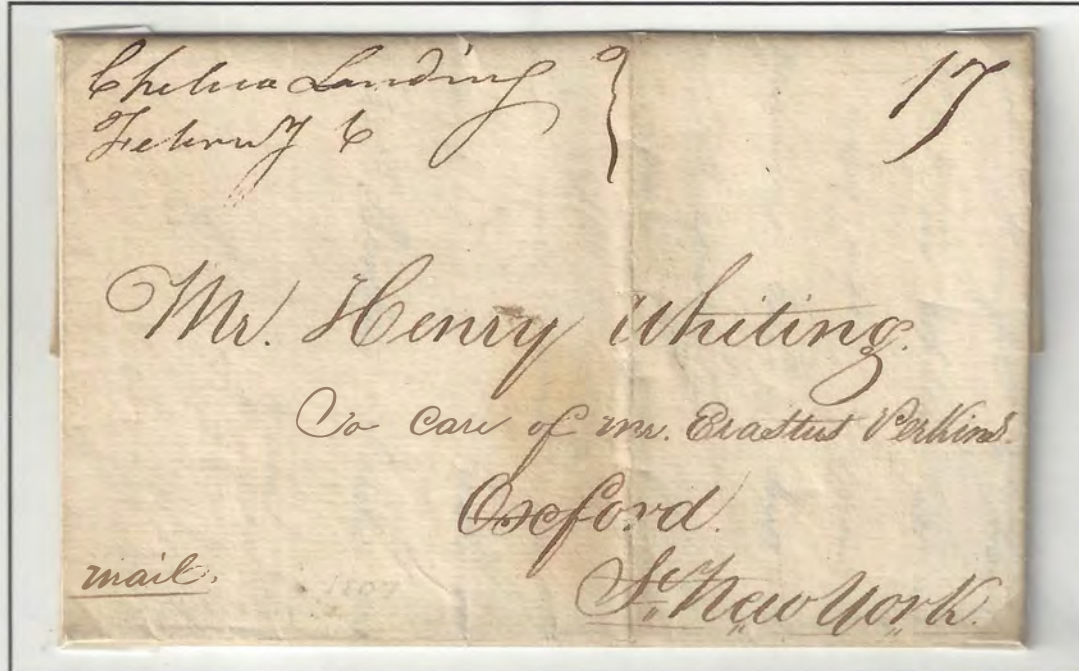 Chelsea Landing
Februy 6
17
Mr. Henry Whiting.
To Care of Mr. Erastus Perkins.
Oxford.
St. New York.
mail.
1807